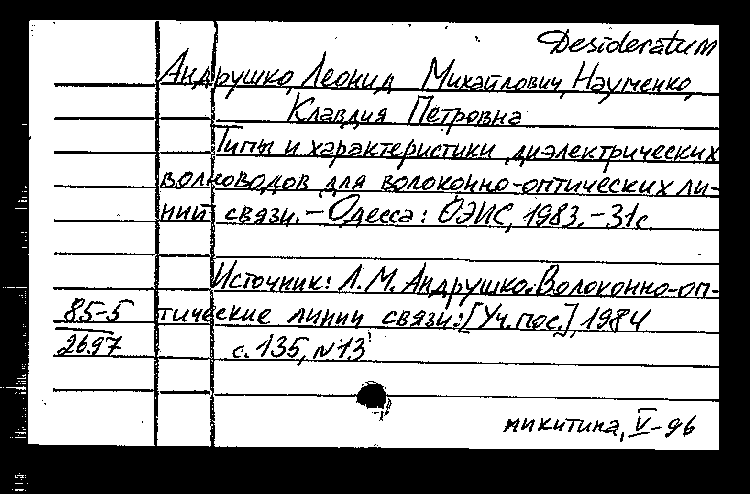 Desideratum
Андрушко, Леонид Михайлович, Науменко,
Клавдия Петровна
Типы и характеристики диэлектрических
волноводов для волоконно-оптических ли-
ний связи. – Одесса: ОЭИС, 1983. – 31 с.
Источник: Л. М. Андрушко. Волоконно-оп-
85-5 тические линии связи: [Уч. пос.], 1984
2697 с. 135, N 13
микитина, V-96